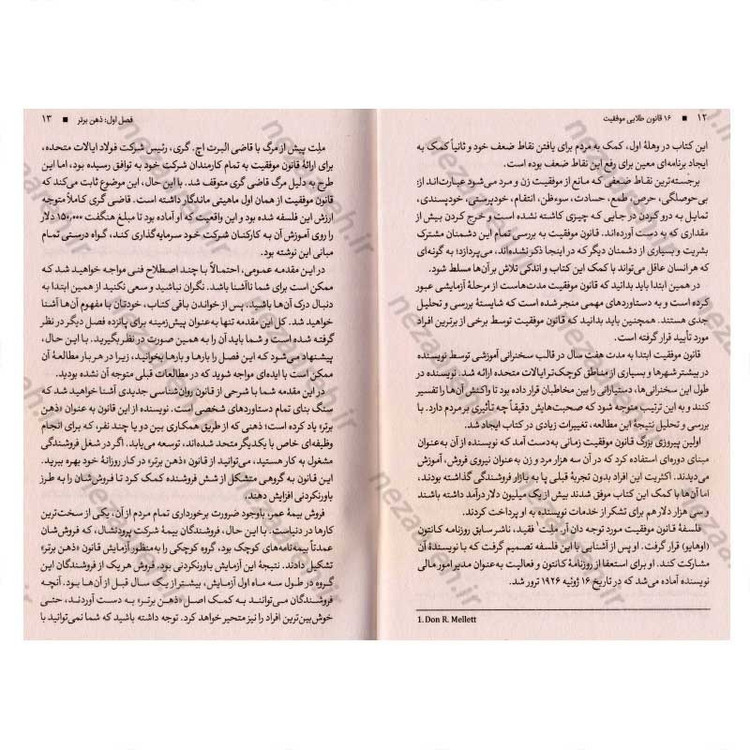 ۱۲ ■ ۱۶ قانون طلایی موفقیت
این کتاب در وهلهٔ اول، کمک به مردم برای یافتن نقاط ضعف خود و ثانیاً کمک به
ایجاد برنامه‌ای معین برای رفع این نقاط ضعف بوده است.
برجسته‌ترین نقاط ضعفی که مانع از موفقیت زن و مرد می‌شود عبارت‌اند از:
بی‌حوصلگی، حرص، طمع، حسادت، سوءظن، انتقام، خودپرستی، خودپسندی،
تمایل به درو کردن در جایی که چیزی کاشته نشده است و خرج کردن بیش از
مقداری که به دست آورده‌اند. قانون موفقیت به بررسی تمامی این دشمنان مشترک
بشریت و بسیاری از دشمنان دیگر که در اینجا ذکر نشده‌اند، می‌پردازد؛ به گونه‌ای
که هر انسان عاقل می‌تواند با کمک این کتاب و اندکی تلاش بر آن‌ها مسلط شود.
در همین ابتدا باید بدانید که قانون موفقیت مدت‌هاست از مرحلهٔ آزمایشی عبور
کرده است و به دستاوردهای مهمی منجر شده است که شایستهٔ بررسی و تحلیل
جدی هستند. همچنین باید بدانید که قانون موفقیت توسط برخی از برترین افراد
مورد تأیید قرار گرفته است.
قانون موفقیت ابتدا به مدت هفت سال در قالب سخنرانی آموزشی توسط نویسنده
در بیشتر شهرها و بسیاری از مناطق کوچک‌تر ایالات متحده ارائه شد. نویسنده در
طول این سخنرانی‌ها، دستیارانی را بین مخاطبان قرار داده بود تا واکنش آن‌ها را تفسیر
کنند و به این ترتیب متوجه شود که صحبت‌هایش دقیقاً چه تأثیری بر مردم دارد. با
بررسی و تحلیل نتیجهٔ این مطالعه، تغییرات زیادی در کتاب ایجاد شد.
اولین پیروزی بزرگ قانون موفقیت زمانی به‌دست آمد که نویسنده از آن به‌عنوان
مبنای دوره‌ای استفاده کرد که در آن سه هزار مرد و زن به‌عنوان نیروی فروش، آموزش
می‌دیدند. اکثریت این افراد بدون تجربهٔ قبلی پا به بازار فروشندگی گذاشته بودند،
اما آن‌ها با کمک این کتاب موفق شدند بیش از یک میلیون دلار درآمد داشته باشند
و سی هزار دلار هم برای تشکر از خدمات نویسنده به او پرداخت کردند.
فلسفهٔ قانون موفقیت مورد توجه دان آر. ملِت¹ فقید، ناشر سابق روزنامه کانتون
(اوهایو) قرار گرفت. او پس از آشنایی با این فلسفه تصمیم گرفت که با نویسندهٔ آن
مشارکت کند. او برای استعفا از روزنامهٔ کانتون و فعالیت به‌عنوان مدیر امور مالی
نویسنده آماده می‌شد که در تاریخ ۱۶ ژوئیه ۱۹۲۶ ترور شد.
1. Don R. Mellett
فصل اول: ذهن برتر ■ ۱۳
ملِت پیش از مرگ با قاضی البرت اچ. گری، رئیس شرکت فولاد ایالات متحده،
برای ارائهٔ قانون موفقیت به تمام کارمندان شرکت خود به توافق رسیده بود، اما این
طرح به دلیل مرگ قاضی گری متوقف شد. با این حال، این موضوع ثابت می‌کند که
قانون موفقیت از همان اول ماهیتی ماندگار داشته است. قاضی گری کاملاً متوجه
ارزش این فلسفه شده بود و این واقعیت که او آماده بود تا مبلغ هنگفت ۱۵۰,۰۰۰ دلار
را روی آموزش آن به کارکنان شرکت خود سرمایه‌گذاری کند، گواه درستی تمام
مبانی این نوشته بود.
در این مقدمه عمومی، احتمالاً با چند اصطلاح فنی مواجه خواهید شد که
ممکن است برای شما ناآشنا باشد. نگران نباشید و سعی نکنید از همین ابتدا به
دنبال درک آن‌ها باشید. پس از خواندن باقی کتاب، خودتان با مفهوم آن‌ها آشنا
خواهید شد. کل این مقدمه تنها به‌عنوان پیش‌زمینه برای پانزده فصل دیگر در نظر
گرفته شده است و شما باید آن را به همین صورت در نظر بگیرید. با این حال،
پیشنهاد می‌شود که این فصل را بارها و بارها بخوانید، زیرا در هر بار مطالعهٔ آن
ممکن است با ایده‌ای مواجه شوید که در مطالعات قبلی متوجه آن نشده بودید.
در این مقدمه شما با شرحی از قانون روان‌شناسی جدیدی آشنا خواهید شد که
سنگ بنای تمام دستاوردهای شخصی است. نویسنده از این قانون به عنوان «ذهن
برتر» یاد کرده است؛ ذهنی که از طریق همکاری بین دو یا چند نفر، که برای انجام
وظیفه‌ای خاص با یکدیگر متحد شده‌اند، توسعه می‌یابد. اگر در شغل فروشندگی
مشغول به کار هستید، می‌توانید از قانون «ذهن برتر» در کار روزانهٔ خود بهره ببرید.
این قانون به گروهی متشکل از شش فروشنده کمک کرد تا فروش‌شان را به طرز
باورنکردنی افزایش دهند.
فروش بیمه عمر، باوجود ضرورت برخورداری تمام مردم از آن، یکی از سخت‌ترین
کارها در دنیاست. با این حال، فروشندگان بیمهٔ شرکت پرودنشال، که فروش‌شان
عمدتاً بیمه‌نامه‌های کوچک بود، گروه کوچکی را به‌منظور آزمایش قانون «ذهن برتر»
تشکیل دادند. نتیجهٔ این آزمایش باورنکردنی بود. فروش هر یک از فروشندگان این
گروه در طول سه ماه اول آزمایش، بیشتر از یک سال قبل از آن‌ها بود. آنچه
فروشندگان می‌توانند به کمک اصل «ذهن برتر» به دست آوردند، حتی
خوش‌بین‌ترین افراد را نیز متحیر خواهد کرد. توجه داشته باشید که شما نمی‌توانید با
nezaareh.ir